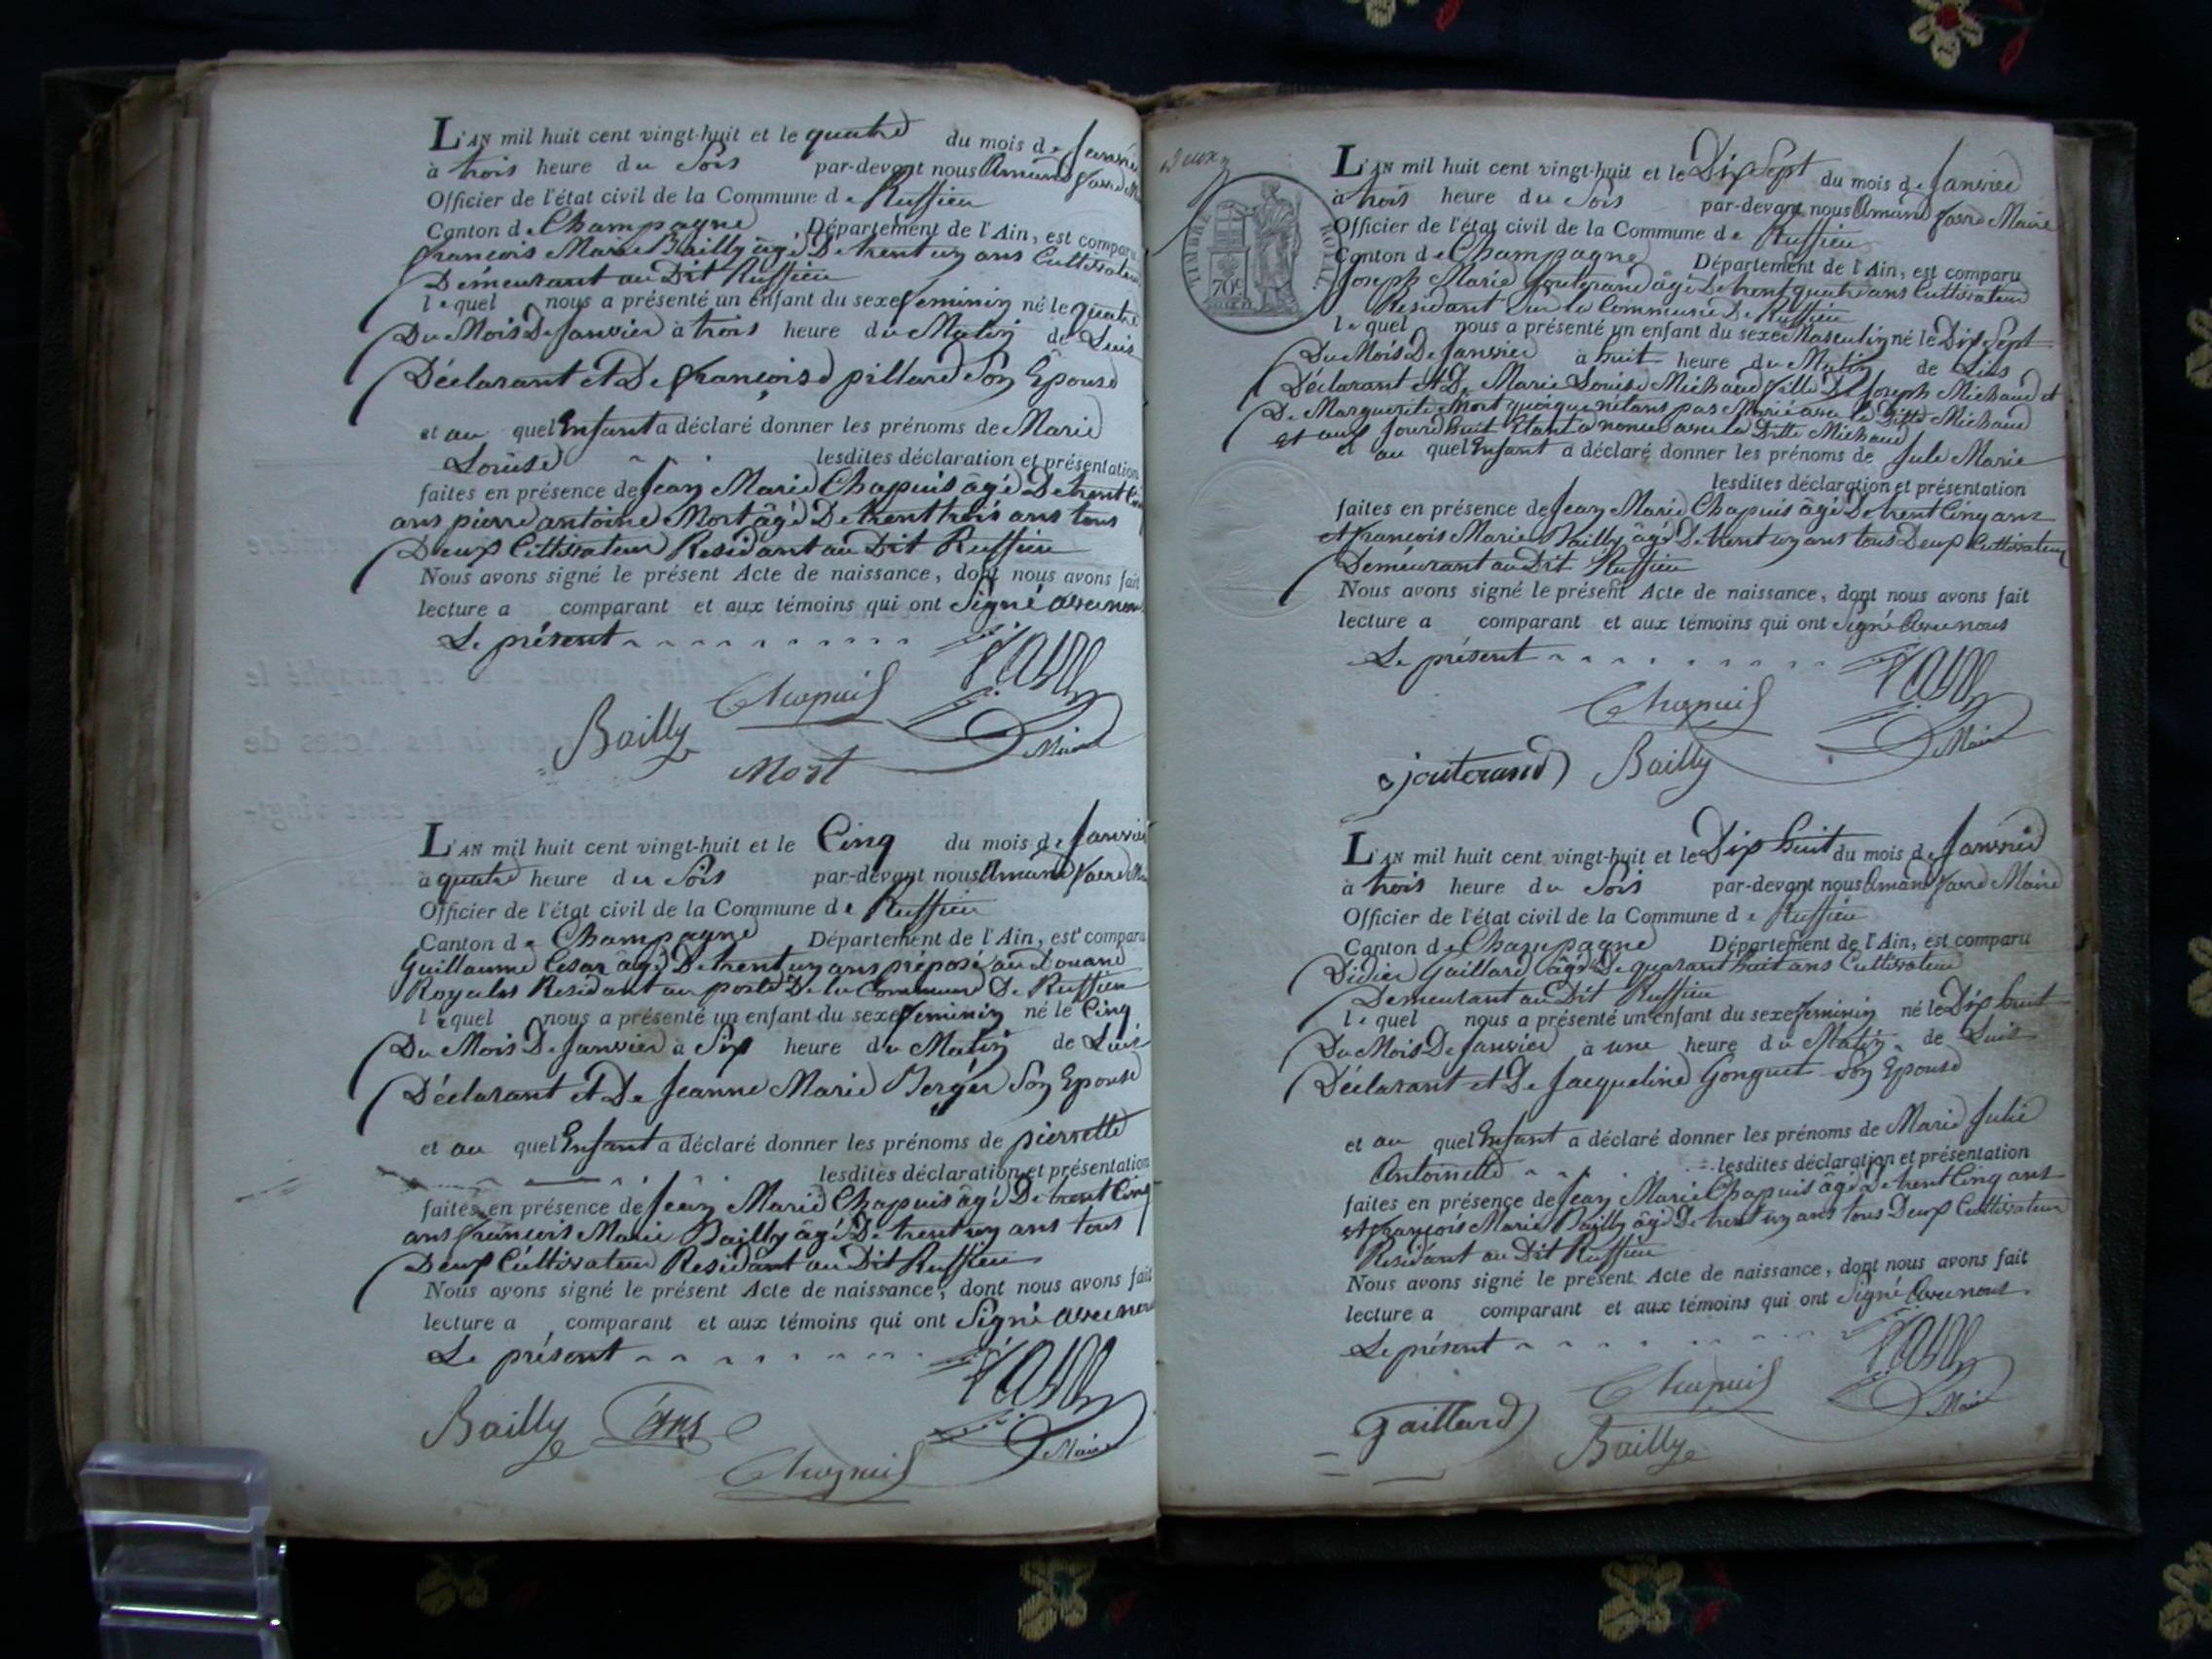 L'AN mil huit cent vingt-huit et le quatre du mois de Janvier
à trois heure du Soir par-devant nous Amand favre
Officier de l'état civil de la Commune de Ruffieu
Canton de Champagne, Département de l'Ain, est comparu
françois Marie Bailly âgé De trent un ans Cultivateur
Demeurant au Dit Ruffieu
lequel nous a présenté un enfant du sexe feminin né le quatre
Du Mois De Janvier à trois heure du Matin de Luis
Déclarant et De françoise pillard Son Epouse
et au quel Enfant a déclaré donner les prénoms de Marie
Louise lesdites déclaration et présentation
faites en présence de Jean Marie Chapuis âgé De trent
ans pierre antoine Mort âgé De trent trois ans tous
Deux Cultivateur Residant au Dit Ruffieu
Nous avons signé le présent Acte de naissance, dont nous avons fait
lecture a comparant et aux témoins qui ont Signé avec nous
Le présent
Bailly Chapuis favre
Mort Maire
L'AN mil huit cent vingt-huit et le Cinq du mois de Janvier
à quatre heure du Soir par-devant nous Amand favre
Officier de l'état civil de la Commune de Ruffieu
Canton de Champagne Département de l'Ain, est comparu
Guillaume Cesar âgé De trent un ans préposé au Douane
Royales Residant au poste De la Commune De Ruffieu
lequel nous a présenté un enfant du sexe feminin né le Cinq
Du Mois De Janvier à Six heure du Matin de Luis
Déclarant et De Jeanne Marie Berger Son Epouse
et au quel Enfant a déclaré donner les prénoms de pierrette
lesdites déclaration et présentation
faites en présence de Jean Marie Chapuis âgé De trent Cinq
ans françois Marie Bailly âgé De trent un ans tous
Deux Cultivateur Residant au Dit Ruffieu
Nous avons signé le présent Acte de naissance, dont nous avons fait
lecture a comparant et aux témoins qui ont Signé avec nous
Le présent
Bailly favre
Chapuis Maire
Deux
TIMBRE ROYAL
70c
L'AN mil huit cent vingt-huit et le Dix Sept du mois de Janvier
à trois heure du Soir par-devant nous Amand favre Maire
Officier de l'état civil de la Commune de Ruffieu
Canton de Champagne Département de l'Ain, est comparu
Joseph Marie Jouterand âgé De trent quatre ans Cultivateur
Residant Sur la Commune De Ruffieu
lequel nous a présenté un enfant du sexe Masculin né le Dix Sept
Du Mois De Janvier à huit heure du Matin de Luis
Déclarant et De Marie Louise Michaud fille De Joseph Michaud et
De Marguerite Mort quoique n'étant pas Marié avec la Ditte Michaud
et au quel Enfant a déclaré donner les prénoms de Jule Marie
lesdites déclaration et présentation
faites en présence de Jean Marie Chapuis âgé De trent Cinq ans
et françois Marie Bailly âgé De trent un ans tous Deux Cultivateur
Demeurant au Dit Ruffieu
Nous avons signé le présent Acte de naissance, dont nous avons fait
lecture a comparant et aux témoins qui ont Signé avec nous
Le présent
Chapuis favre
jouterand Bailly Maire
L'AN mil huit cent vingt-huit et le Dix huit du mois de Janvier
à trois heure du Soir par-devant nous Amand favre Maire
Officier de l'état civil de la Commune de Ruffieu
Canton de Champagne Département de l'Ain, est comparu
Didier Gaillard âgé De quarant huit ans Cultivateur
Demeurant au Dit Ruffieu
lequel nous a présenté un enfant du sexe feminin né le Dix huit
Du Mois De Janvier à une heure du Matin de Luis
Déclarant et De Jacqueline Gonguet Son Epouse
et au quel Enfant a déclaré donner les prénoms de Marie Julie
Antoinette lesdites déclaration et présentation
faites en présence de Jean Marie Chapuis âgé De trent Cinq ans
et françois Marie Bailly âgé De trent un ans tous Deux Cultivateur
Residant au Dit Ruffieu
Nous avons signé le présent Acte de naissance, dont nous avons fait
lecture a comparant et aux témoins qui ont Signé avec nous
Le présent
Chapuis favre
Gaillard Bailly Maire